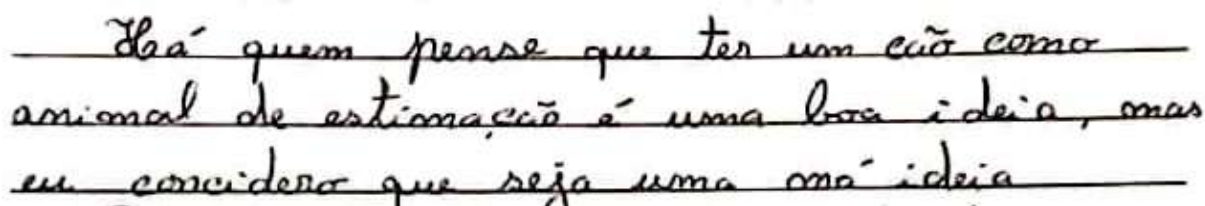 Há quem pense que ter um cão como
animal de estimação é uma boa ideia, mas
eu concidero que seja uma má ideia